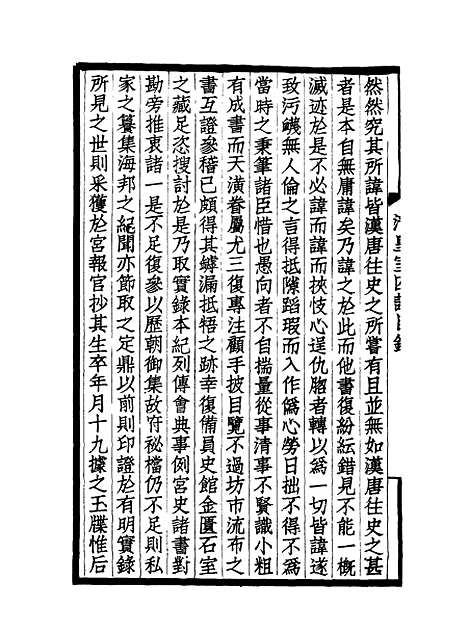 然然究其所諱皆漢唐往史之所嘗有且並無如漢唐往史之甚
者是本自無庸諱矣乃諱之於此而他書復紛紜錯見不能一概
滅迹於是不必諱而諱而挾忮心逞仇胸者轉以爲一切皆諱遂
致污衊無人倫之言得抵隙蹈瑕而入作僞心勞日拙不得不爲
當時之秉筆諸臣惜也愚向者不自揣量從事清事不賢識小粗
有成書而天潢眷屬尤三復專注顧手披目覽不過坊市流布之
書互證參稽已頗得其罅漏抵牾之跡幸復備員史館金匱石室
之藏足恣搜討於是乃取實錄本紀列傳會典事例宮史諸書對
勘旁推衷諸一是不足復參以歷朝御集故府祕檔仍不足則私
家之纂集海邦之紀聞亦節取之定鼎以前則印證於有明實錄
所見之世則采獲於宮報官抄其生卒年月十九據之玉牒惟后
清皇室四譜目錄